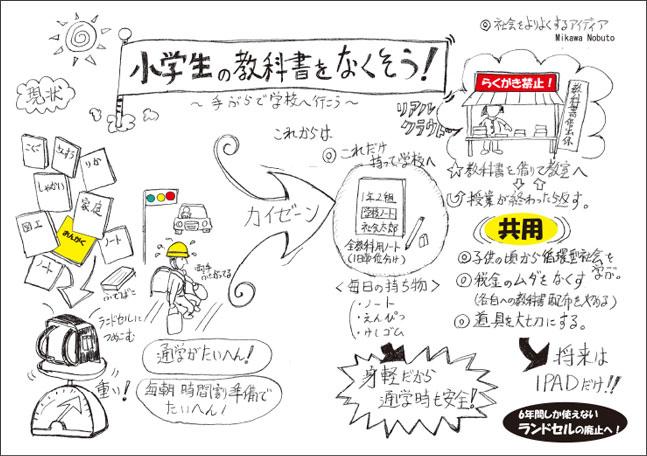 ◎社会をよりよくするアイディア
Mikawa Nobuto
小学生の教科書をなくそう!
～手ぶらで学校へ行こう～
現状
こくご
さんすう
りか
しゃかい
家庭
図工
おんがく
ノート
ノート
ふでばこ
ランドセルに
つめこむ
重い!
両手
ふさがってる
通学がたいへん!
毎朝時間割準備で
たいへん!
これからは
カイゼーン
◎これだけ
持って学校へ
1年2組
学校ノート
社会太郎
全教科用ノート
(1日単位分け)
<毎日の持ち物>
・ノート
・えんぴつ
・けしゴム
身軽だから
通学時も安全!
リアル
クラウド
らくがき禁止!
☆教科書を借りて教室へ
授業が終わったら返す。
共用
◎子供の頃から循環型社会を
学ぶ。
◎税金のムダをなくす
(各自への教科書配布を改める)
◎道具を大切にする。
将来は
IPADだけ!!
6年間しか使えない
ランドセルの廃止へ!